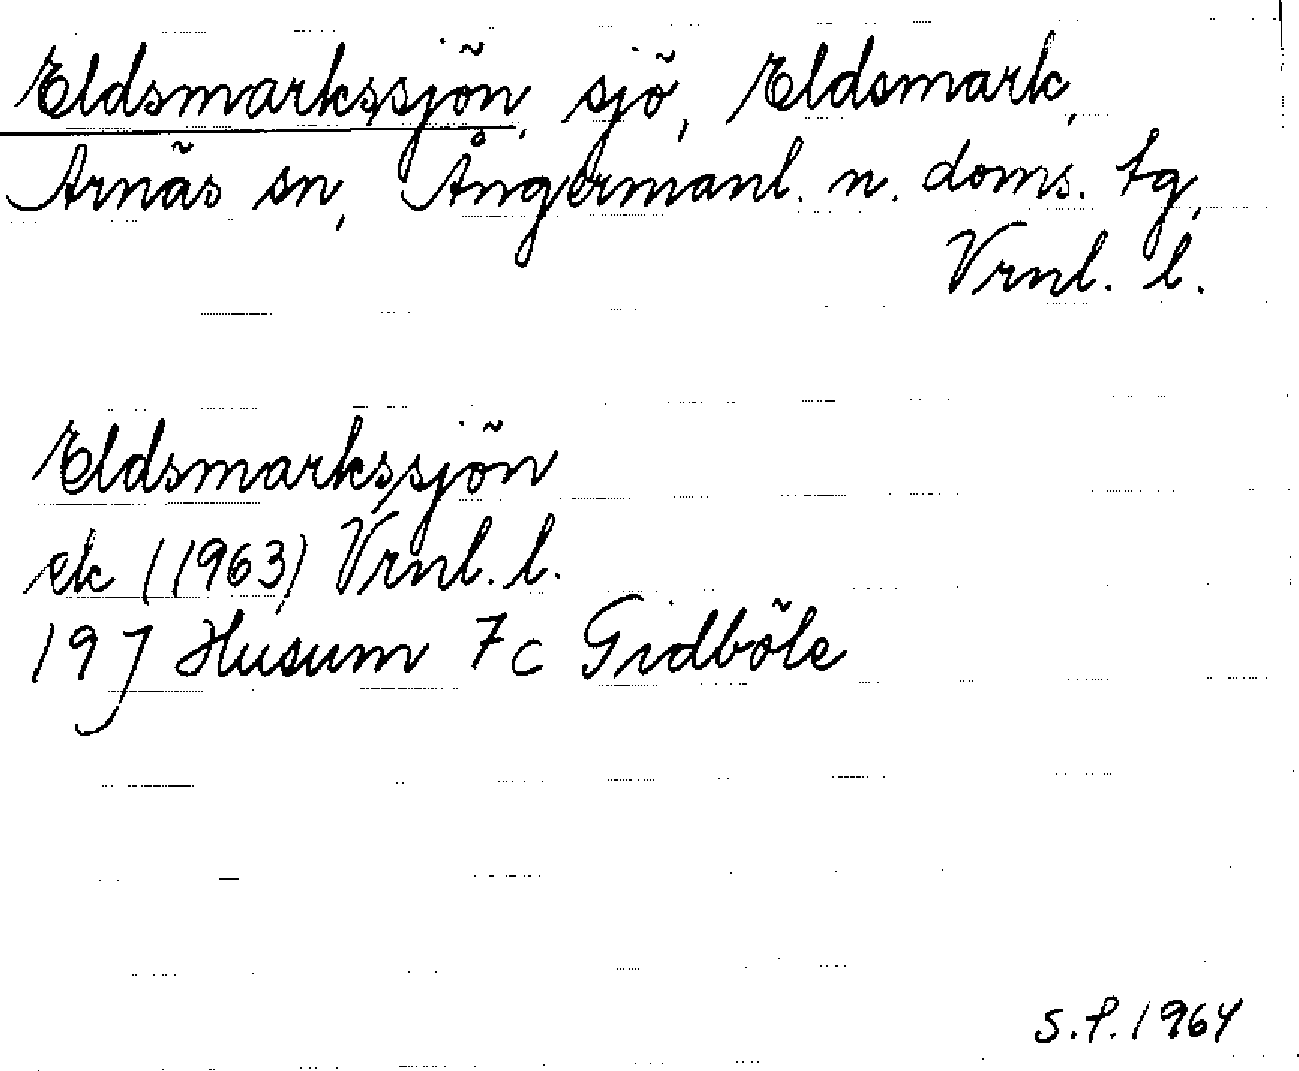 Eldsmarkssjön, sjö, Eldsmark,
Arnäs sn, Ångermanl. n. doms. tg,
Vrnl. l.
Eldsmarkssjön
ek (1963) Vrnl. l.
19J Husum 7c Gidböle
S.P. 1964